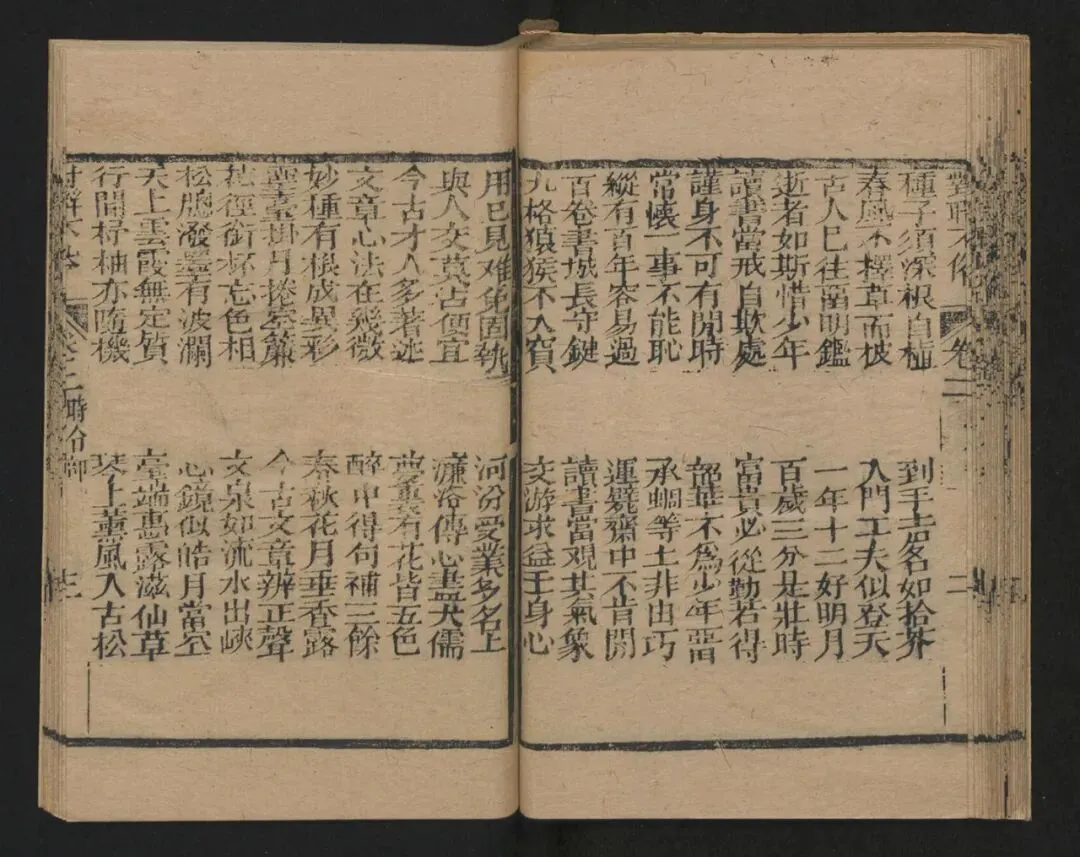 對聯不俗 卷二 二
種子須深根自植 到手名如拾芥
春風不擇草而披 入門工夫似登天
古人已往留明鑑 一年十二好明月
逝者如斯惜少年 百歲三分是壯時
讀書當戒自欺處 富貴必從勤若得
謹身不可有閒時 韶華不為少年留
常懷一事不能恥 承蜩等土非由巧
縱有百年容易過 運甓齋中不肯閒
百卷書城長守鍵 讀書當觀其氣象
九格猿猴不入 交游求益于身心
用已見难免固執 河汾受業多名上
與人交莫占便宜 濂洛傳心盡大儒
今古才人多著述 夢裏看花皆五色
文章心法在幾微 醉中得句補三餘
妙種有根成異彩 春秋花月垂香露
靈臺掛月捲空簾 今古文章辨正聲
花徑銜杯忘色相 文泉如流水出峽
松牕潑墨有波瀾 心鏡似皓月當空
天上雲霞無定質 臺端惠露滋仙草
行間杼柚亦隨機 琴上薰風入古松
卷二 時令部